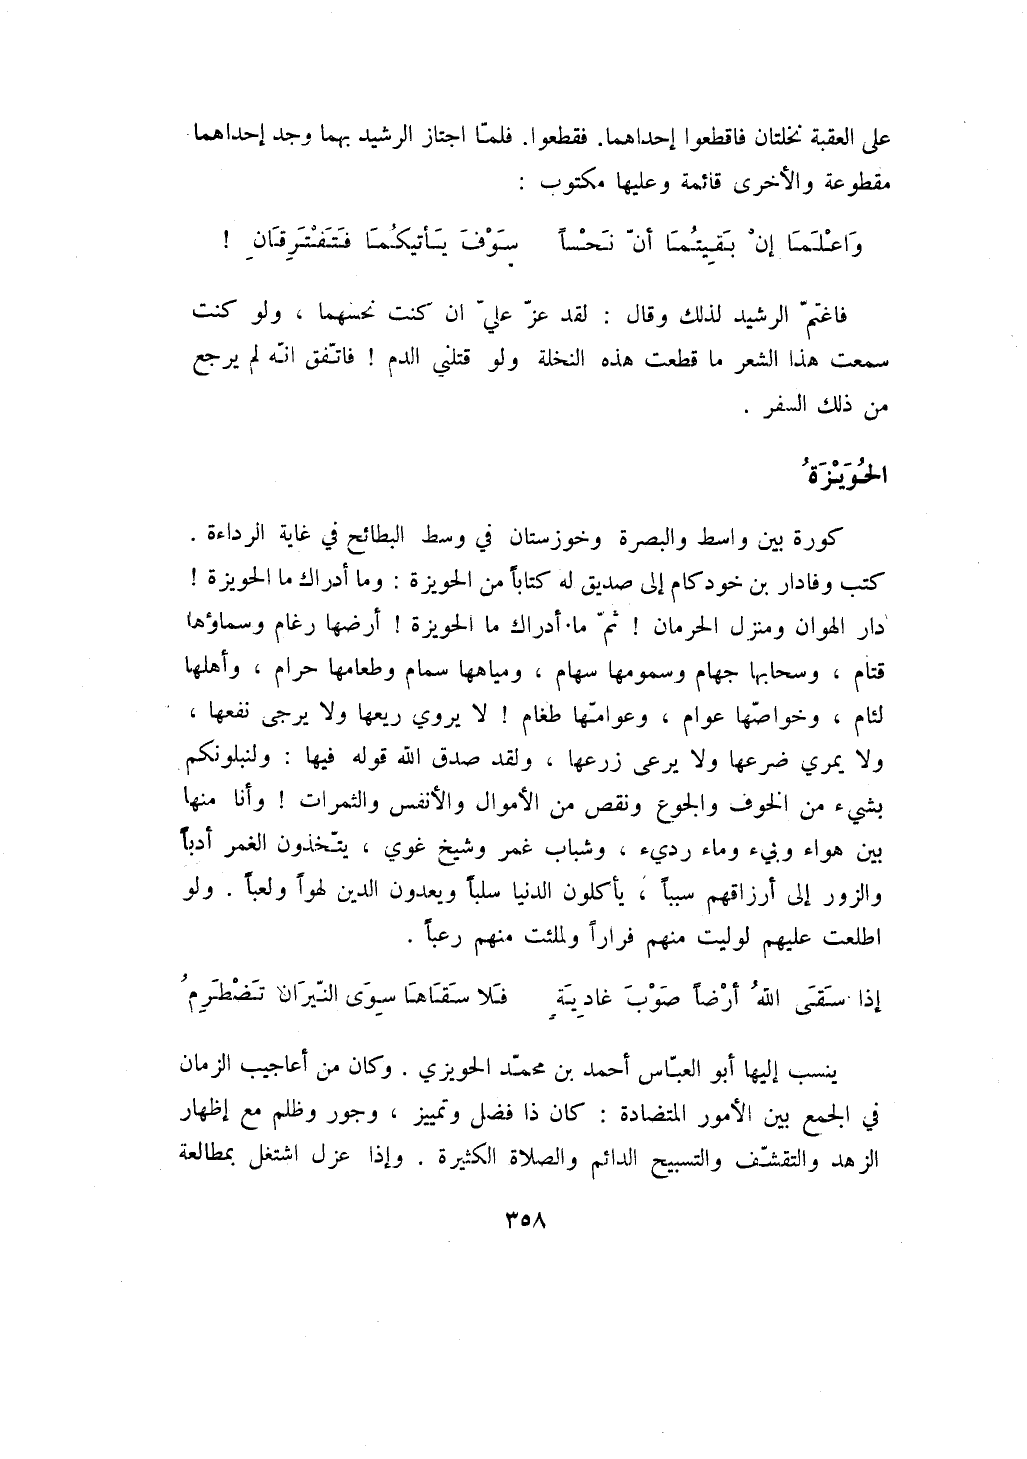 على العقبة نخلتان فاقطعوا إحداهما. فقطعوا. فلمّا اجتاز الرشيد بهما وجد إحداهما
مقطوعة والأخرى قائمة وعليها مكتوب :
وَاعْلَمَا إنْ بَقِيتُمَا أنّ نَحْساً سَوْفَ يَأتيكُمَا فَتَفْتَرِقَانِ !
فاغتمّ الرشيد لذلك وقال : لقد عزّ عليّ ان كنت نحسهما ، ولو كنت
سمعت هذا الشعر ما قطعت هذه النخلة ولو قتلني الدم ! فاتّفق انّه لم يرجع
من ذلك السفر .
الحُوَيْزَةُ
كورة بين واسط والبصرة وخوزستان في وسط البطائح في غاية الرداءة .
كتب وفادار بن خودكام إلى صديق له كتاباً من الحويزة : وما أدراك ما الحويزة !
دار الهوان ومنزل الحرمان ! ثمّ ما أدراك ما الحويزة ! أرضها رغام وسماؤها
قتام ، وسحابها جهام وسمومها سهام ، ومياهها سمام وطعامها حرام ، وأهلها
لئام ، وخواصّها عوام ، وعوامّها طغام ! لا يروي ريعها ولا يرجى نفعها ،
ولا يمري ضرعها ولا يرعى زرعها ، ولقد صدق الله قوله فيها : ولنبلونكم
بشيء من الخوف والجوع ونقص من الأموال والأنفس والثمرات ! وأنا منها
بين هواء وبيء وماء رديء ، وشباب غمر وشيخ غوي ، يتّخذون الغمر أدباً
والزور إلى أرزاقهم سبباً ، يأكلون الدنيا سلباً ويعدون الدين لهواً ولعباً . ولو
اطلعت عليهم لوليت منهم فراراً ولملئت منهم رعباً .
إذا سَقَى اللهُ أرْضاً صَوْبَ غادِيَةٍ فَلا سَقَاهَا سِوَى النّيرَانِ تَضْطَرِمُ
ينسب إليها أبو العبّاس أحمد بن محمّد الحويزي . وكان من أعاجيب الزمان
في الجمع بين الأمور المتضادة : كان ذا فضل وتمييز ، وجور وظلم مع إظهار
الزهد والتقشّف والتسبيح الدائم والصلاة الكثيرة . وإذا عزل اشتغل بمطالعة
٣٥٨